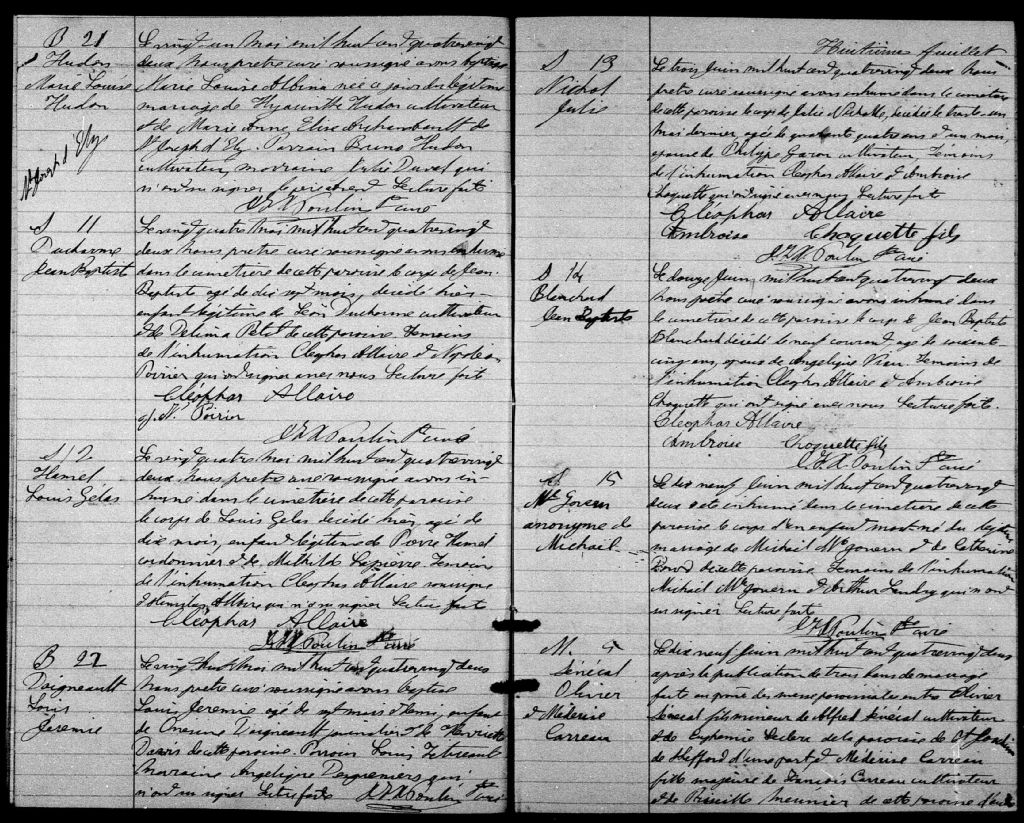 B 21
Hudon
Marie Louise
Hudon
St Joseph d'Ely
Le vingt un Mai mil huit cent quatrevingt
deux Nous pretre curé soussigné avons baptisé
Marie Louise Albina née ce jour du légitime
mariage de Hyacinthe Hudon cultivateur
et de Marie Anne Elise Archambault de
St Joseph d'Ely. Parrain Bruno Hudon
cultivateur, marraine Julie Duval qui
n'ont su signer le père absent Lecture faite
J F X Poulin Ptre curé
S 11
Ducharme
Jean Baptiste
Le vingt quatre Mai mil huit cent quatrevingt
deux Nous pretre curé soussigné avons inhumé
dans le cimetière de cette paroisse le corps de Jean
Baptiste agé de dix sept mois, décédé hier
enfant légitime de Léon Ducharme cultivateur
et de Delima Petit de cette paroisse Temoins
de l'inhumation Cleophas Allaire et Napoléon
Poirier qui ont signer avec nous Lecture faite
Cléophas Allaire
N. Poirier
J F X Poulin Ptre curé
S 12
Hamel
Louis Gélas
Le vingt quatre Mai mil huit cent quatrevingt
deux Nous pretre curé soussigné avons in-
humé dans le cimetière de cette paroisse
le corps de Louis Gélas décédé hier, agé de
dix mois, enfant légitime de Pierre Hamel
cordonnier et de Mathilde Lapierre Temoins
de l'inhumation Cleophas Allaire soussigné
et Stanislas Allaire qui n'a su signer Lecture faite
Cléophas Allaire
J F X Poulin Ptre curé
B 22
Daigneault
Louis
Jeremie
Le vingt huit Mai mil huit cent quatrevingt deux
Nous pretre curé soussigné avons baptisé
Louis Jeremie agé de sept mois et demi, enfant
de Onesime Daigneault journalier et de Henriette
Davis de cette paroisse. Parrain Louis Tetreault
Marraine Angelique Desgreniers qui
n'ont su signer Lecture faite J F X Poulin Ptre curé
Huitième feuillet
S 13
Nichol
Julie
Le trois Juin mil huit cent quatrevingt deux Nous
pretre curé soussigné avons inhumé dans le cimetière
de cette paroisse le corps de Julie Nicholle, décédée le trente un
Mai dernier, agée de quarante quatre ans et un mois,
epouse de Philippe Garon cultivateur, Témoins
de l'inhumation Cleophas Allaire et Ambroise
Choquette qui ont signé avec nous Lecture faite
Cléophas Allaire
Ambroise Choquette fils
J F X Poulin Ptre curé
S 14
Blanchard
Jean Baptiste
Le douze Juin, mil huit cent quatrevingt deux
Nous prêtre curé soussigné avons inhumé dans
le cimetière de cette paroisse le corps de Jean Baptiste
Blanchard décédé le neuf courant, agé de soixante
cinq ans, epoux de Angelique Viau. Temoins de
l'inhumation Cleophas Allaire et Ambroise
Choquette qui ont signé avec nous Lecture faite.
Cleophas Allaire
Ambroise Choquette fils
J F X Poulin Ptre curé
S 15
Mc Govern
anonyme de
Michael
Le dix neuf Juin mil huit cent quatrevingt
deux a été inhumé dans le cimetière de cette
paroisse le corps d'un enfant mort né du légitime
mariage de Michael Mc Govern et de Catherine
de cette paroisse Temoins de l'inhumation
Michael Mc govern et Arthur Landry qui n'ont
su signer Lecture faite
J F X Poulin Ptre curé
M. 5
Sénécal
Olivier
& Méderise
Carreau
Le dix neuf Juin mil huit cent quatrevingt deux
après la publication de trois bans de mariage
faite au prone des messes paroissiales entre Olivier
Sénécal fils mineur de Alfred Sénécal cultivateur
et de Euphemie Leclerc de la paroisse de St
de Shefford d'une part, et Méderise Carreau
fille majeure de François Carreau cultivateur
et de Priscille Meunier de cette paroisse d'autre